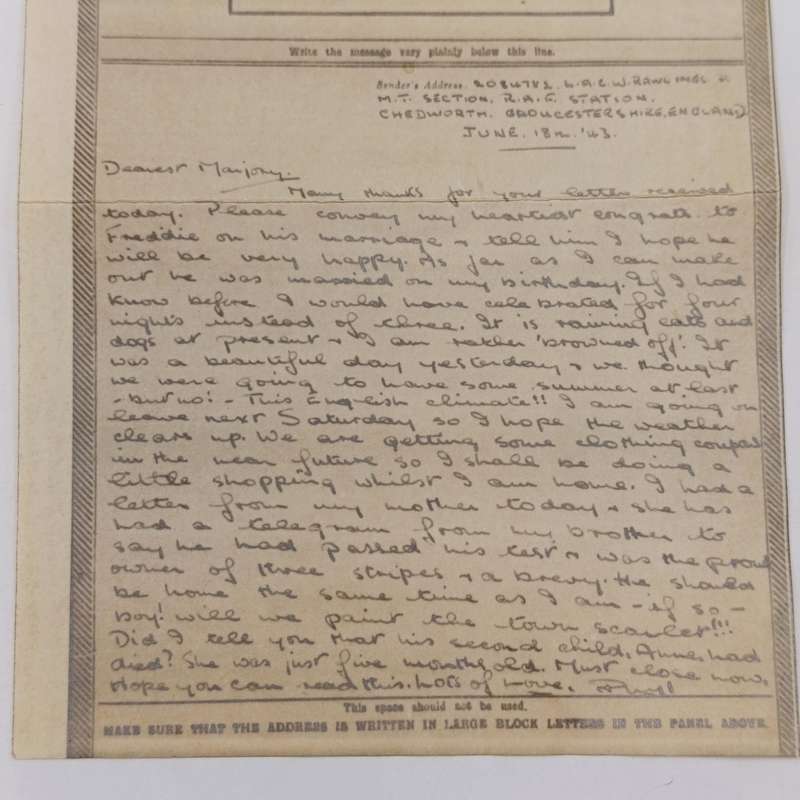 Write the message very plainly below this line.
Sender's Address 2084782. L.A.C. W. RAWLINGS
M.T. SECTION, R.A.F. STATION.
CHEDWORTH. GLOUCESTERSHIRE, ENGLAND
JUNE. 18th. '43.
Dearest Marjory.
Many thanks for your letter received
today. Please convey my heartiest congrats to
Freddie on his marriage & tell him I hope he
will be very happy. As far as I can make
out he was married on my birthday. If I had
know before I would have celebrated for four
nights instead of three. It is raining cats and
dogs at present & I am rather 'browned off'. It
was a beautiful day yesterday & we thought
we were going to have some summer at last
- but no! - This English climate!! I am going on
leave next Saturday so I hope the weather
clears up. We are getting some clothing coupons
in the near future so I shall be doing a
little shopping whilst I am home. I had a
letter from my mother today & she has
had a telegram from my brother to
say he had passed his test & was the proud
owner of three stripes & a brevy. He should
be home the same time as I am - if so -
Boy! will we paint the town scarlet!!!
Did I tell you that his second child, Anne, had
died? She was just five months old. Must close now.
Hope you can read this. Lots of love.
This space should not be used.
MAKE SURE THAT THE ADDRESS IS WRITTEN IN LARGE BLOCK LETTERS IN THE PANEL ABOVE.